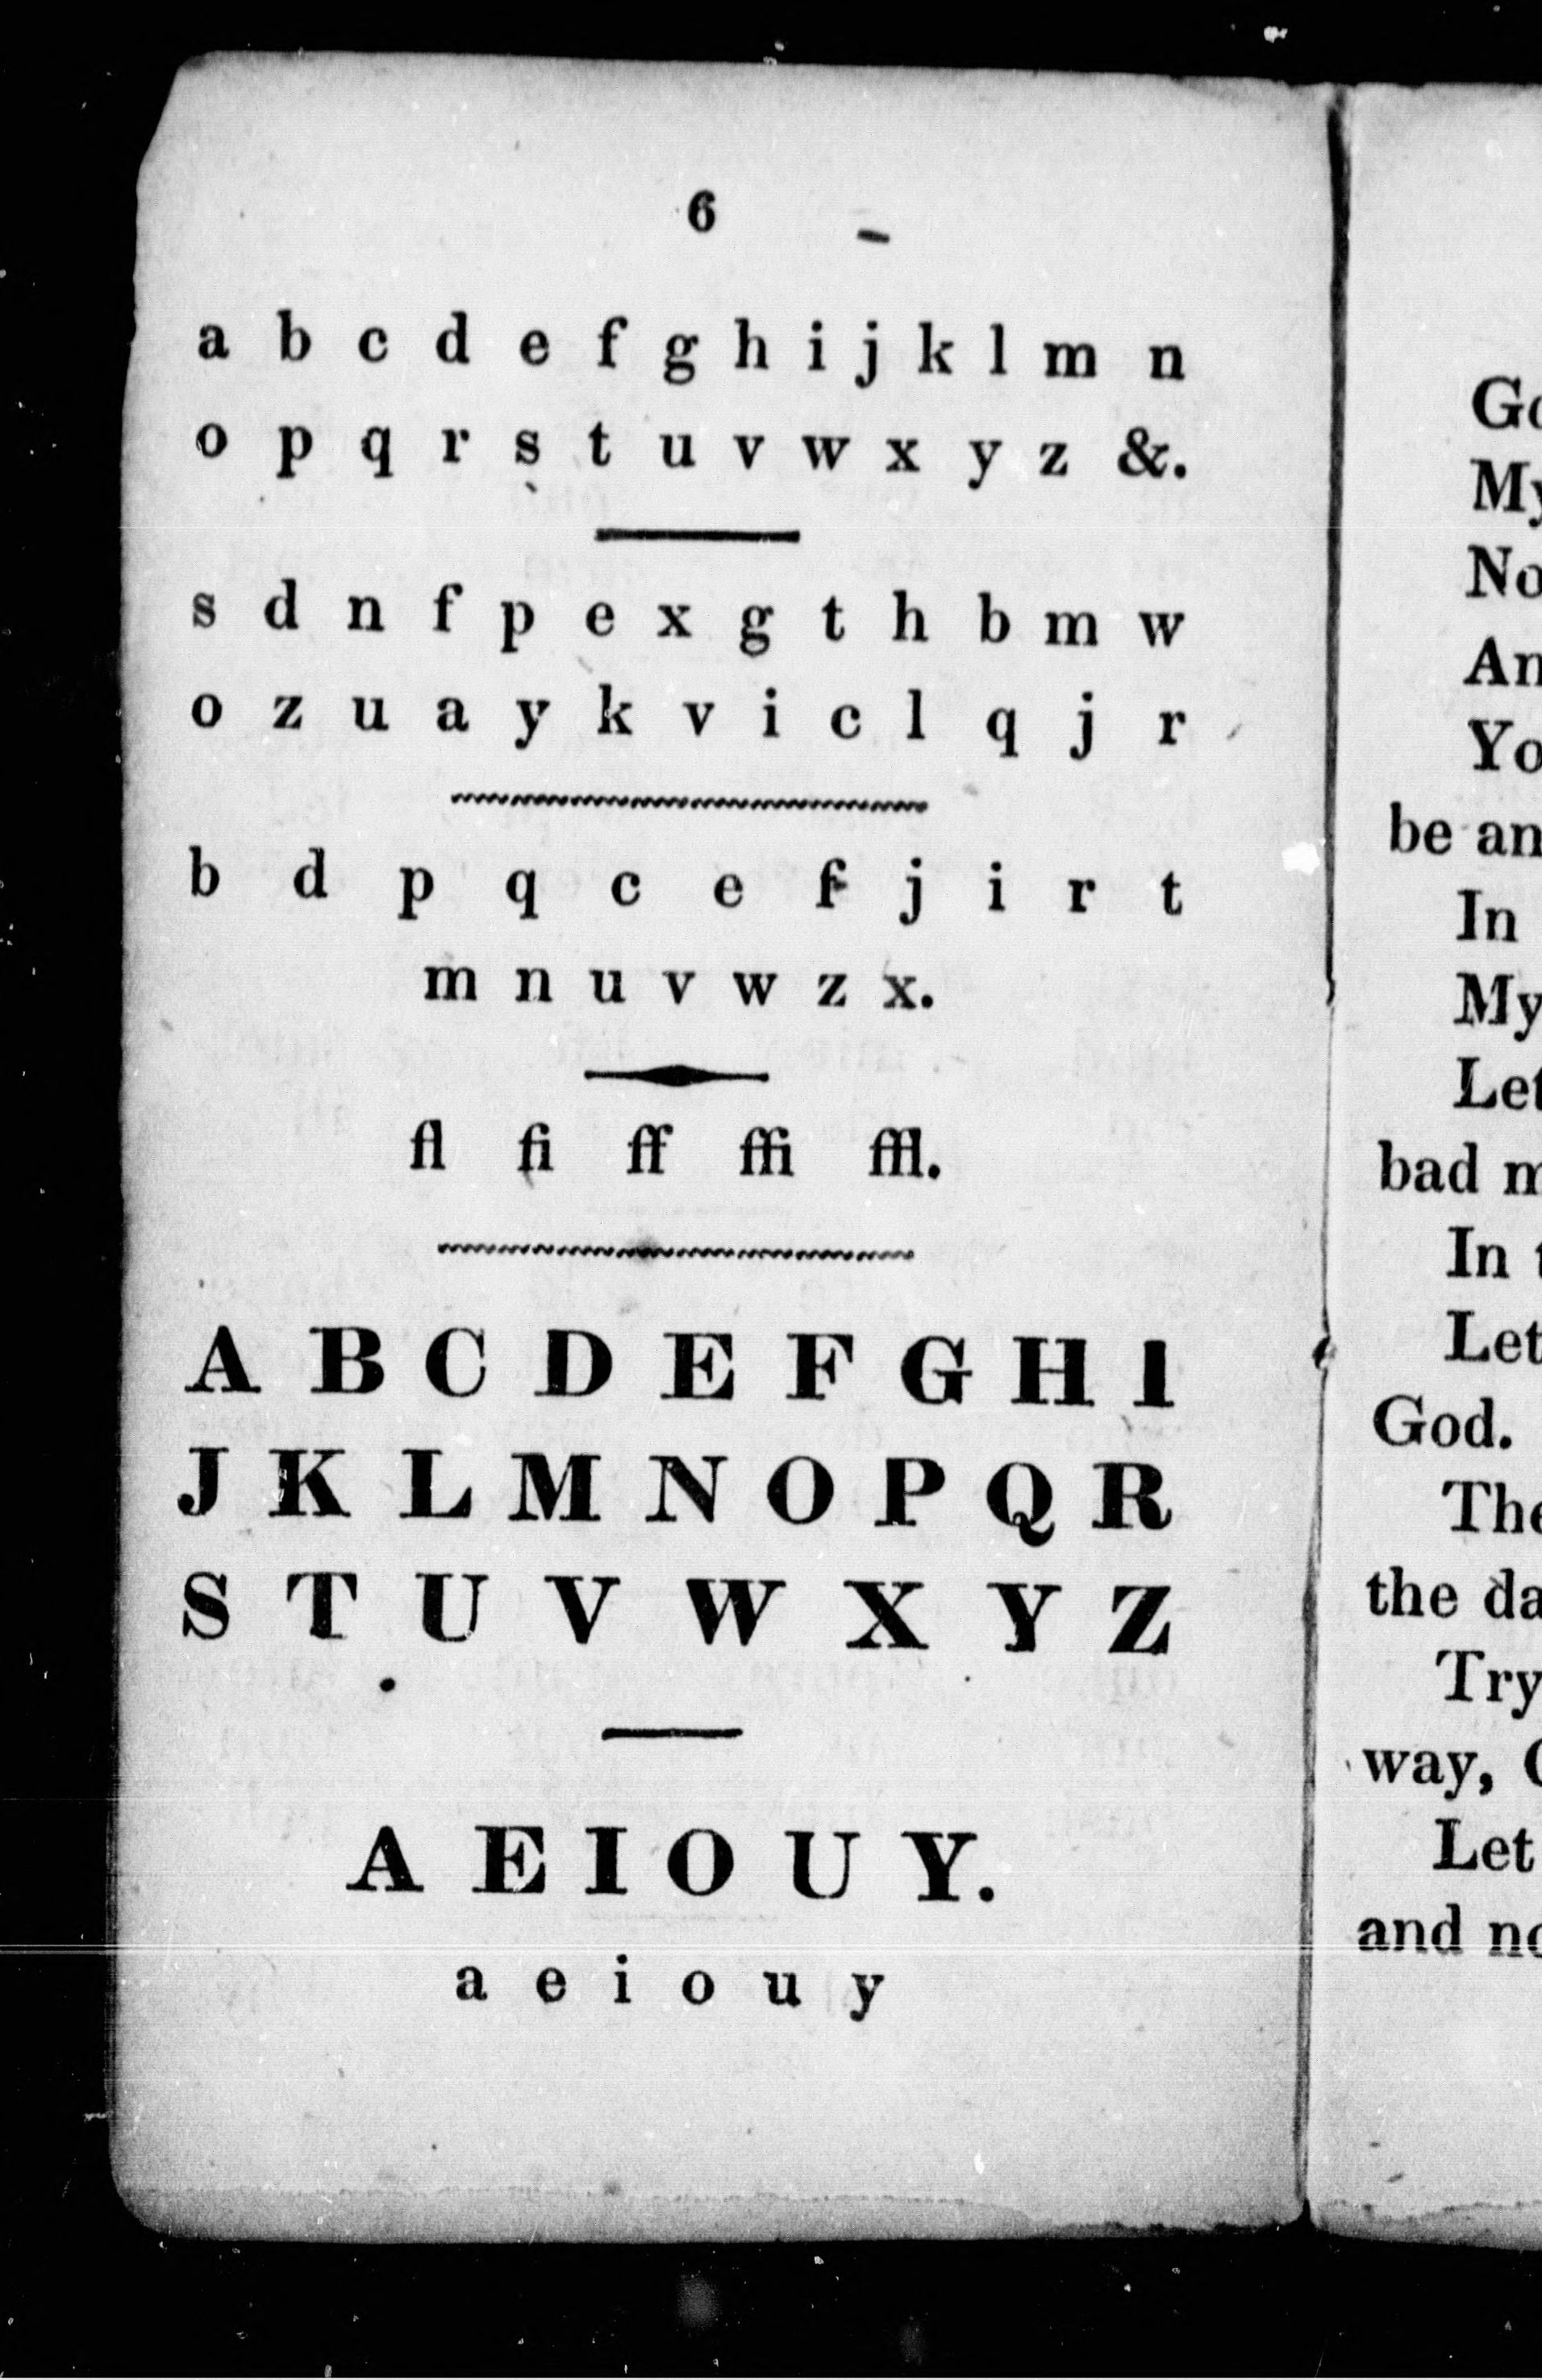 6
a b c d e f g h i j k l m n
o p q r s t u v w x y z &.
s d n f p e x g t h b m w
o z u a y k v i c l q j r
b d p q c e f j i r t
m n u v w z x.
fl fi ff ffi ffl.
A B C D E F G H I
J K L M N O P Q R
S T U V W X Y Z
A E I O U Y.
a e i o u y
My
be an
In
My
Let
bad
In
Let
God.
The
the
Try
way,
Let
and